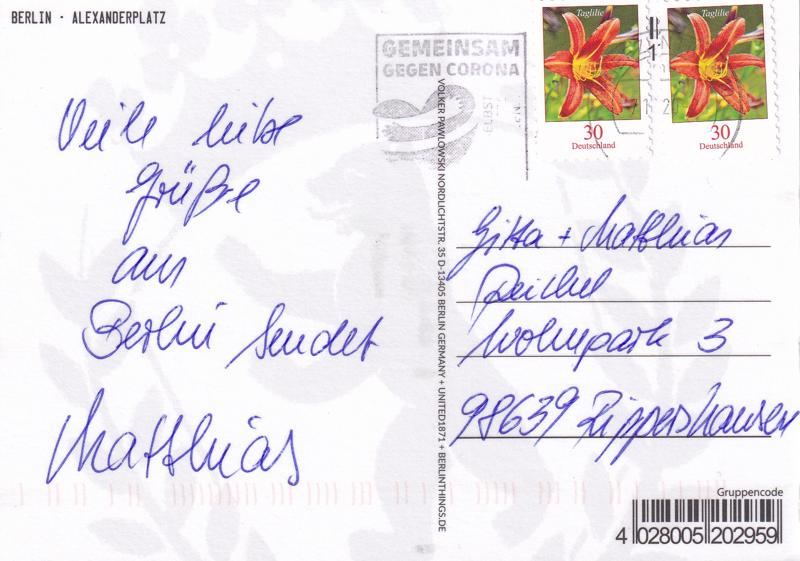 BERLIN · ALEXANDERPLATZ
Viele liebe
Grüße
aus
Berlin sendet
Matthias
GEMEINSAM
GEGEN CORONA
Taglilie
30
Deutschland
Taglilie
30
Deutschland
VOLKER PAWLOWSKI NORDLICHTSTR. 35 D-13405 BERLIN GERMANY + UNITED1871 + BERLINTHINGS.DE
Gitta + Matthias
Deichel
Wohnpark 3
98639 Rippershausen
Gruppencode
4 028005 202959